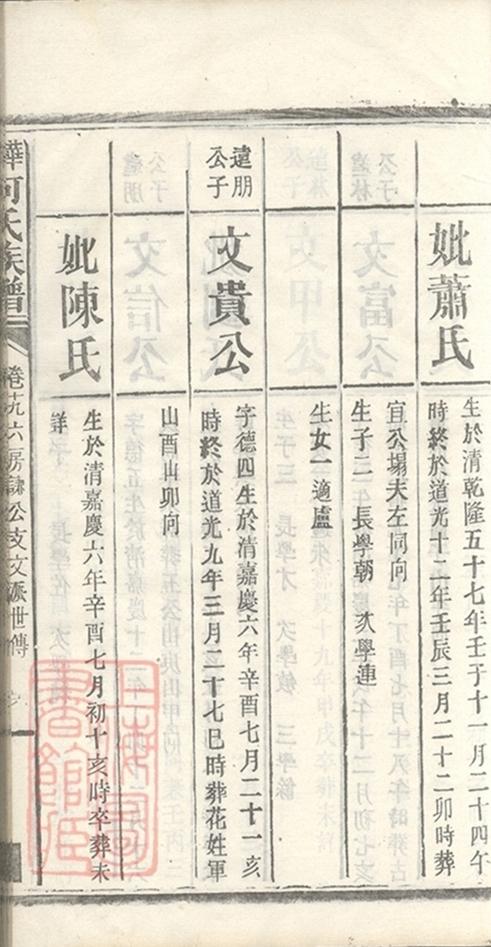 妣蕭氏
生於清乾隆五十七年壬子十一月二十四午
時終於道光十二年壬辰三月二十二卯時葬
宜公塲夫左同向
生子二 長學朝 次學連
生女一適盧
達朋
公子
文貴公
字德四生於清嘉慶六年辛酉七月二十一亥
時終於道光九年三月二十七巳時葬花姓軍
山酉山卯向
妣陳氏
生於清嘉慶六年辛酉七月初十亥時卒葬未
詳
何氏族譜
卷十九六房諱公支文派世傳